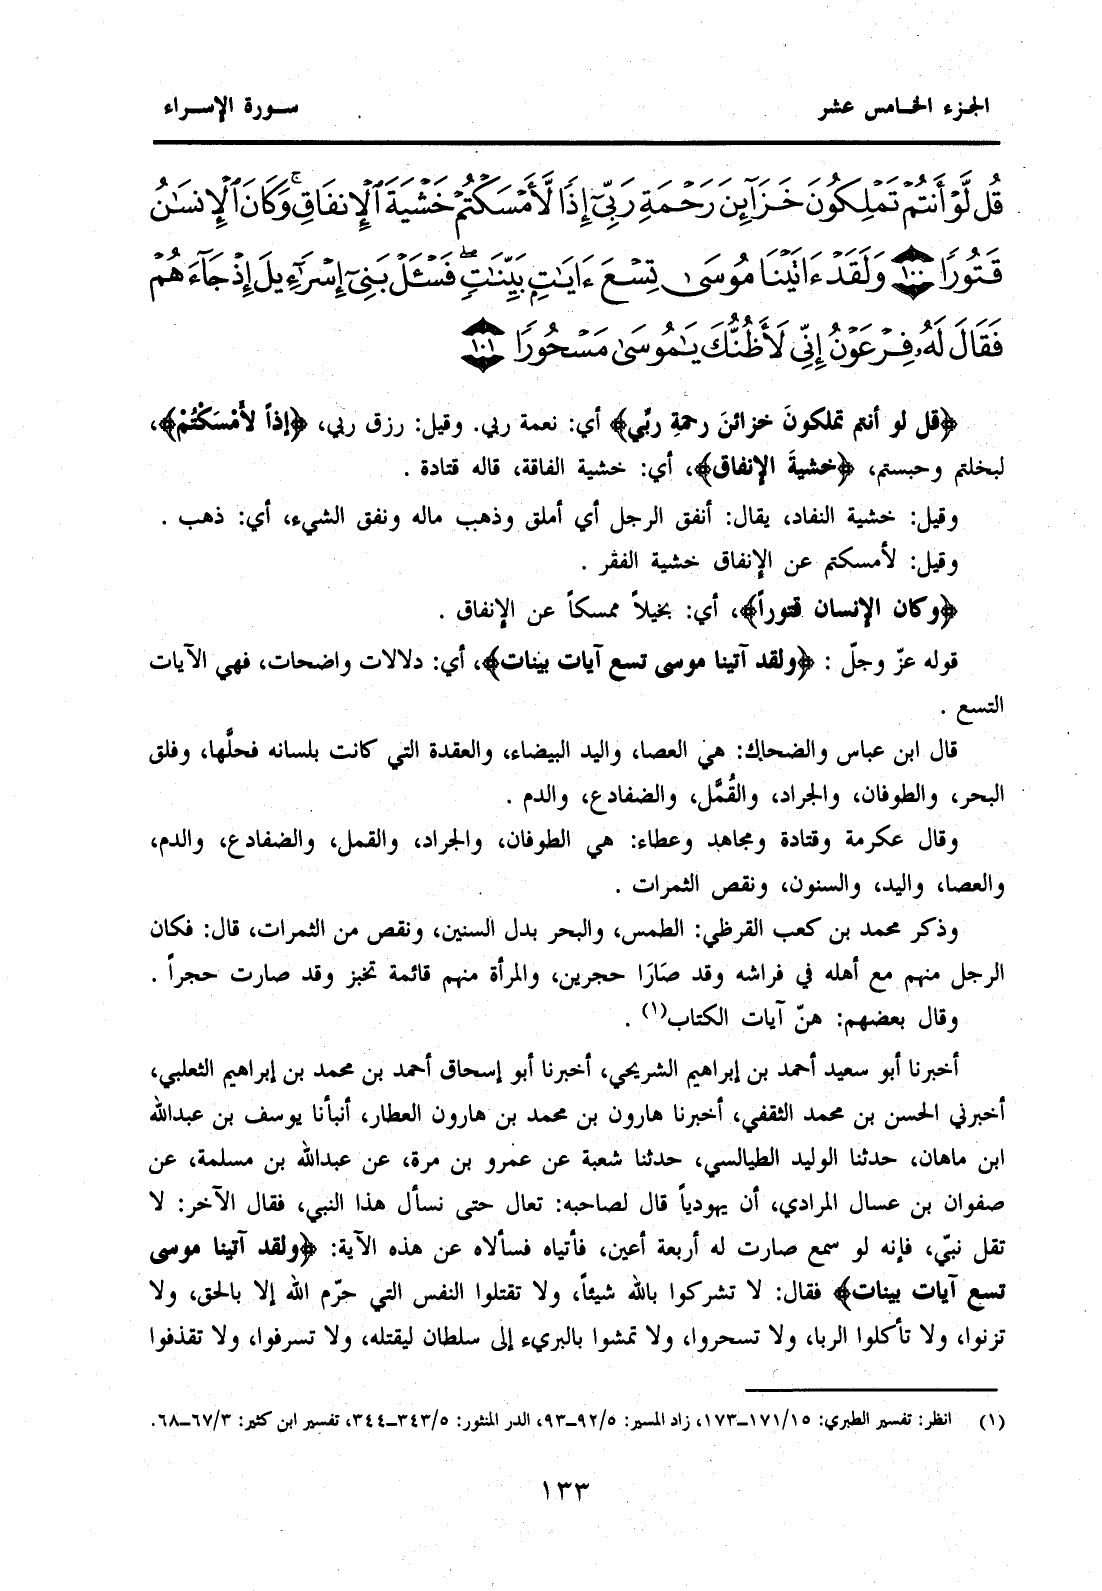 الجزء الخامس عشر
سورة الإسراء
قُل لَّوْ أَنتُمْ تَمْلِكُونَ خَزَآئِنَ رَحْمَةِ رَبِّىٓ إِذًا لَّأَمْسَكْتُمْ خَشْيَةَ ٱلْإِنفَاقِ ۚ وَكَانَ ٱلْإِنسَـٰنُ
قَتُورًا ١٠٠ وَلَقَدْ ءَاتَيْنَا مُوسَىٰ تِسْعَ ءَايَـٰتٍۭ بَيِّنَـٰتٍ ۖ فَسْـَٔلْ بَنِىٓ إِسْرَٰٓءِيلَ إِذْ جَآءَهُمْ
فَقَالَ لَهُۥ فِرْعَوْنُ إِنِّى لَأَظُنُّكَ يَـٰمُوسَىٰ مَسْحُورًا ١٠١
﴿قل لو أنتم تملكونَ خزائنَ رحمةِ ربِّي﴾ أي: نعمة ربي. وقيل: رزق ربي، ﴿إذاً لأَمْسَكْتُمْ﴾،
لبخلتم وحبستم، ﴿خشيةَ الإنفاق﴾، أي: خشية الفاقة، قاله قتادة .
وقيل: خشية النفاد، يقال: أنفق الرجل أي أملق وذهب ماله ونفق الشيء، أي: ذهب .
وقيل: لأمسكتم عن الإنفاق خشية الفقر .
﴿وكان الإنسان قتوراً﴾، أي: بخيلاً ممسكاً عن الإنفاق .
قوله عزّ وجلّ : ﴿ولقد آتينا موسى تسع آيات بينات﴾، أي: دلالات واضحات، فهي الآيات
التسع .
قال ابن عباس والضحاك: هي العصا، واليد البيضاء، والعقدة التي كانت بلسانه فحلَّها، وفلق
البحر، والطوفان، والجراد، والقُمَّل، والضفادع، والدم .
وقال عكرمة وقتادة ومجاهد وعطاء: هي الطوفان، والجراد، والقمل، والضفادع، والدم،
والعصا، واليد، والسنون، ونقص الثمرات .
وذكر محمد بن كعب القرظي: الطمس، والبحر بدل السنين، ونقص من الثمرات، قال: فكان
الرجل منهم مع أهله في فراشه وقد صَارَا حجرين، والمرأة منهم قائمة تخبز وقد صارت حجراً .
وقال بعضهم: هنّ آيات الكتاب(١) .
أخبرنا أبو سعيد أحمد بن إبراهيم الشريحي، أخبرنا أبو إسحاق أحمد بن محمد بن إبراهيم الثعلبي،
أخبرني الحسن بن محمد الثقفي، أخبرنا هارون بن محمد بن هارون العطار، أنبأنا يوسف بن عبدالله
ابن ماهان، حدثنا الوليد الطيالسي، حدثنا شعبة عن عمرو بن مرة، عن عبدالله بن مسلمة، عن
صفوان بن عسال المرادي، أن يهودياً قال لصاحبه: تعال حتى نسأل هذا النبي، فقال الآخر: لا
تقل نبيّ، فإنه لو سمع صارت له أربعة أعين، فأتياه فسألاه عن هذه الآية: ﴿ولقد آتينا موسى
تسع آيات بينات﴾ فقال: لا تشركوا بالله شيئاً، ولا تقتلوا النفس التي حرّم الله إلا بالحق، ولا
تزنوا، ولا تأكلوا الربا، ولا تسحروا، ولا تمشوا بالبريء إلى سلطان ليقتله، ولا تسرفوا، ولا تقذفوا
(١) انظر: تفسير الطبري: ١٧١/١٥ــ١٧٣، زاد المسير: ٩٢/٥ــ٩٣، الدر المنثور: ٣٤٣/٥ــ٣٤٤، تفسير ابن كثير: ٦٧/٣ــ٦٨.
١٣٣